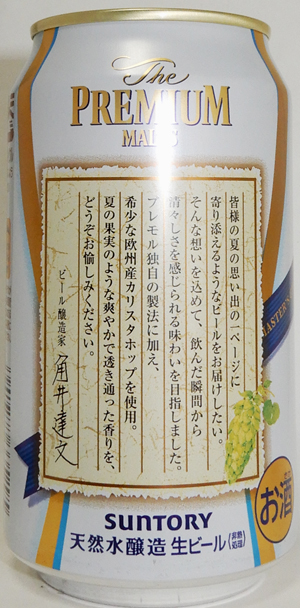 The
PREMIUM
MALT'S
MASTER'S
皆様の夏の思い出の一ページに
寄り添えるようなビールをお届けしたい。
そんな想いを込めて、飲んだ瞬間から
清々しさを感じられる味わいを目指しました。
プレモル独自の製法に加え、
希少な欧州産カリスタホップを使用。
夏の果実のような爽やかで透き通った香りを、
どうぞお愉しみください。
ビール醸造家 角井達文
お酒
SUNTORY
天然水醸造 生ビール(非熱処理)